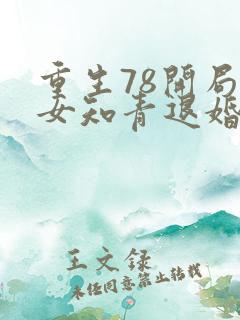 重生78开局
女知青退婚
王文录
未经同意禁止转载